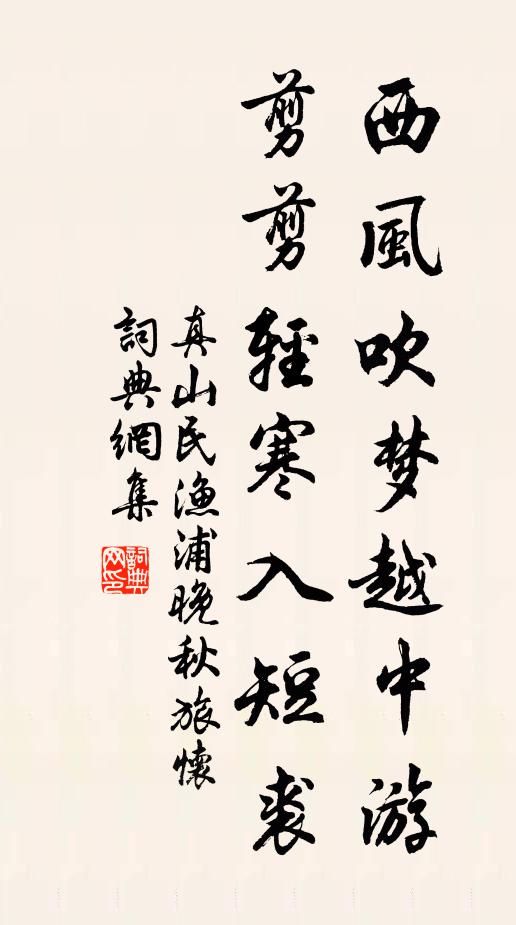 西風吹梦越中游
剪剪輕寒入短裘
真山民渔浦晚秋旅懷
詞典網集
詞典网印